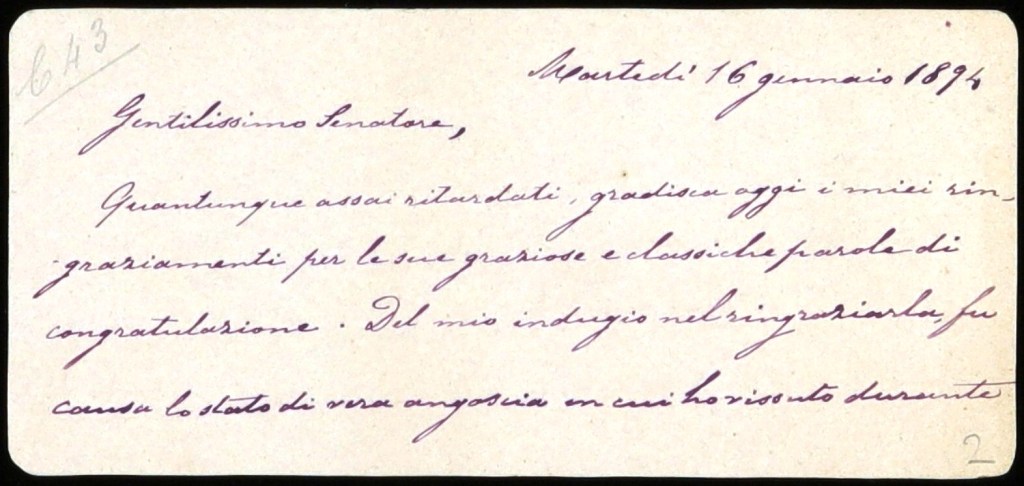 643
Martedì 16 gennaio 1894
Gentilissimo Senatore,
Quantunque assai ritardati, gradisca oggi i miei rin-
-graziamenti per le sue graziose e classiche parole di
congratulazione. Del mio indugio nel ringraziarla, fu
causa lo stato di vera angoscia in cui ho vissuto durante
2